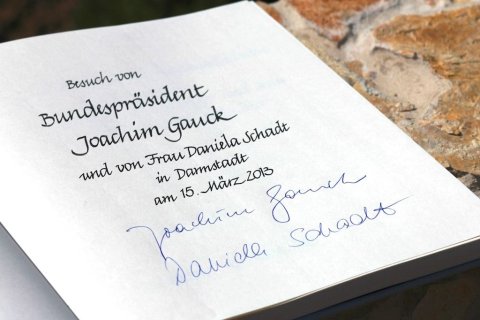 Besuch von
Bundespräsident
Joachim Gauck
und von Frau Daniela Schadt
in Darmstadt
am 15. März 2013
Joachim Gauck
Daniela Schadt